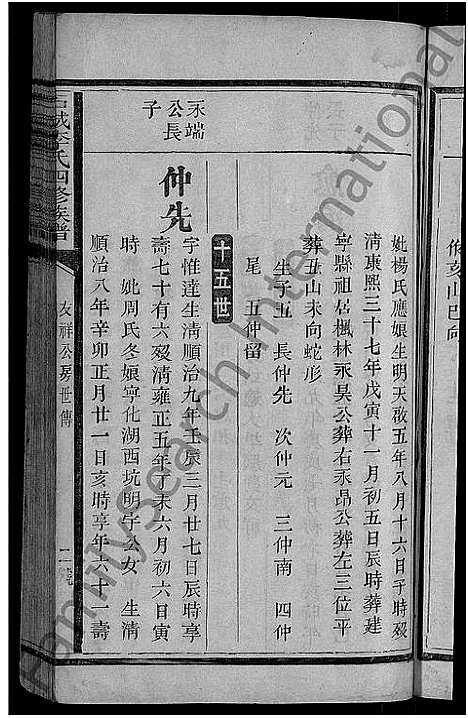 妣楊氏應娘生明天啟五年八月十六日子時歿
清康熙三十七年戊寅十一月初五日辰時葬建
寧縣祖居楓林永昊公葬右永昂公葬左三位平
葬丑山未向蛇形
生子五 長仲先 次仲元 三仲南 四仲
尾 五仲留
十五世
永端
公長
子
仲先
字惟達生清順治九年壬辰三月廿七日辰時享
壽七十有六歿清雍正五年丁未六月初六日寅
時 妣周氏冬娘寧化湖西坑明宇公女 生清
順治八年辛卯正月廿一日亥時享年六十一壽
石城李氏四修族譜
友祥公房世傳
FamilySearch International